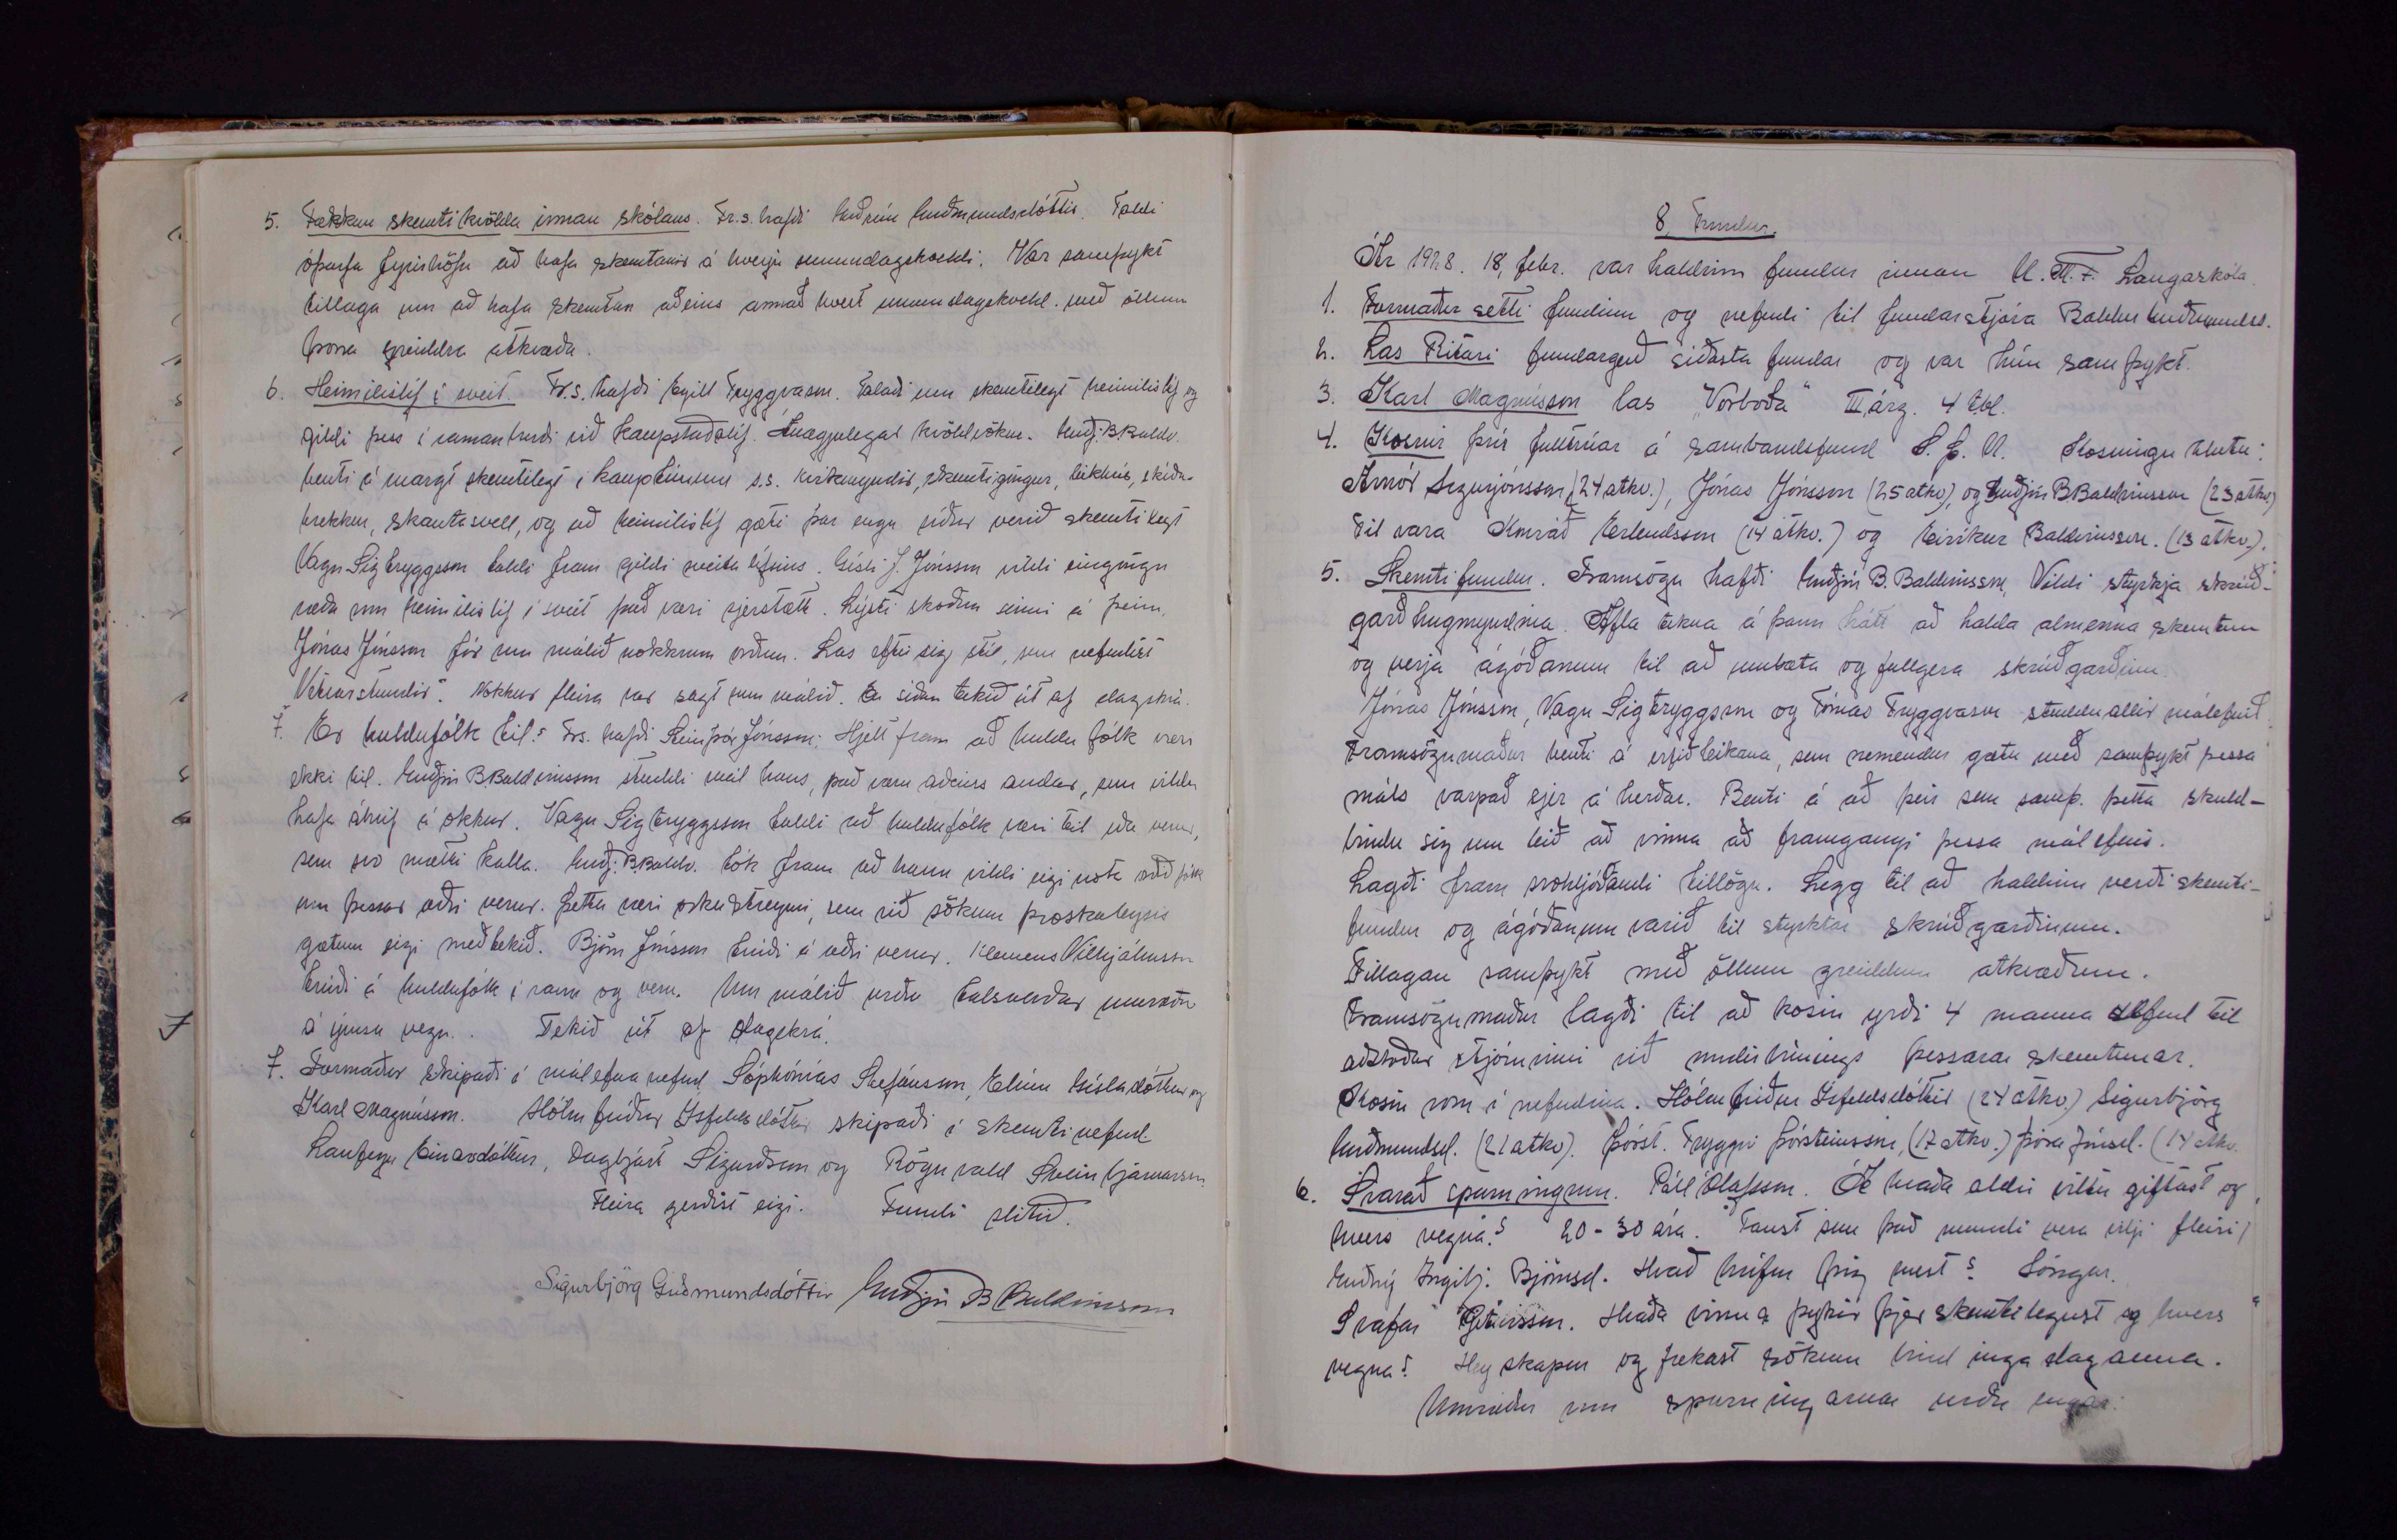 5. Fækkun skemtikvölda innan skólans. Fr.s. hafði Guðrún Guðmundsdóttir. Taldi
óþarfa fyrirhöfn að hafa skemtanir á hverju sunnudagskveldi. Var samþykt
tillaga um að hafa skemtun aðeins annað hvert sunnudagskveld með öllum
þorra greiddra atkvæða.
6. Heimilislíf í sveit. Fr.s. hafði Egill Tryggvason. Talaði um skemtilegt heimilislíf og
gildi þess í samanburði við kaupstaðalíf. Ánægjulegar kvöldvökur. Guðj. B Baldv.
benti á margt skemtilegt í kauptúnum s.s. kvikmyndir, skemtigöngur, leikhús, skíða-
brekkur, skautasvell, og að heimilislíf gæti þar engu síður verið skemtilegt
Vagn Sigtryggsson taldi fram gildi sveitalífsins. Gísli J. Jónsson vildi eingöngu
ræða um heimilislíf í sveit það væri sjerstætt. Lýsti skoðun sinni á þeim.
Jónas Jónsson fór um málið nokkrum orðum. Las eftir sig stíl, sem nefndist
"Vökurstundir". Nokkur fleira var sagt um málið. En síðan tekið út af dagskrá.
7. Er huldufólk til? Frs. hafði Steinþór Jónsson. Hjelt fram að huldufólk væri
ekki til. Guðjón B. Baldvinsson studdi mál hans, það væru aðeins andar, sem vildu
hafa áhrif á okkur. Vagn Sigtryggsson taldi að huldufólk væri til eða verur,
sem svo mætti kalla. Guðj. B. Baldv. tók fram að hann vildi eigi nota orðið fólk
um þessar æðri verur. Þetta væri orkustreymi, sem við sökum þroskaleysis
gætum eigi meðtekið. Björn Jónsson trúði á æðri verur. Klemens Vilhjálmsson
trúði á huldufólk í raun og veru. Um málið urðu talsverðar umræður
á ýmsa vegu. Tekið út af dagskrá.
7. Formaður skipaði í málefnanefnd Sóphónías Stefánsson, Elínu Gísladóttur og
Karl Magnússon. Hólmfríður Ísfeldsdóttir skipaði í skemtinefnd
Laufeyu Einarsdóttur, Dagbjart Sigurðsson og Rögnvald Sveinbjarnarson.
Fleira gerðist eigi. Fundi slitið.
Sigurbjörg Guðmundsdóttir Guðjón B Baldvinsson
8. Fundur.
Ár 1928. 18. febr. var haldinn fundur innan U.M.F. Laugaskóla.
1. Formaður setti fundinn og nefndi til fundarstjóra Baldur Guðmundss.
2. Las Ritari fundargerð síðasta fundar og var hún samþykt.
3. Karl Magnússon las "Vorboða" III, árg. 4 tbl.
4. Kosnir þrír fulltrúar á sambandsfund S.þ.U. Kosningu hlutu:
Arnór Sigurjónsson (24 atkv.), Jónas Jónsson (25 atkv), og Guðjón B Baldvinsson (23 atkv)
Til vara Konráð Erlendsson (14 atkv.) og Eiríkur Baldvinsson. (13 atkv.).
5. Skemtifundur. Framsögu hafði Guðjón B. Baldvinsson, Vildi styrkja skrúð-
garðhugmyndina. Afla tekna á þann hátt að halda almenna skemtun
og verja ágóðanum til að umbæta og fullgera skrúðgarðinn.
Jónas Jónsson, Vagn Sigtryggsson og Tómas Tryggvason studdu allir málefnið.
Framsögumaður benti á erfiðleikana, sem nemendur gætu með samþykt þessa
máls varpað sjer á herðar. Benti á að þeir sem samþ. þetta skuld-
bindu sig um leið að vinna að framgangi þessa málefnis.
Lagði fram svohljóðandi tillögu. Legg til að haldinn verði skemti-
fundur og ágóðanum varið til styrktar skrúðgarðinum.
Tillagan samþykt með öllum greiddum atkvæðum.
Framsögumaður lagði til að kosin yrði 4 manna nefnd til
aðstoðar stjórninni við undirbúnings þessarar skemtunar.
Kosin vom í nefndina. Hólmfríður Ísfeldsdóttir (24 atkv.) Sigurbjörg
Guðmundsd. (21 atkv). Þórst. Tryggvi Þórsteinsson, (17 atkv.) Þóra Jónsd. (14 atkv.
6. Svarað spurningum. Páll Ólafsson. Á hvaða aldri viltu giftast og
hvers vegna? 20-30 ára. Taust sem það mundi vera vilji fleiri
Guðný Ingibj. Björnsd. Hvað hrífur þig mest? Söngur.
Svafar Hvaða vinna þykir þjer skemtilegust og hvers
vegna? Heyskapur og frekast sökum bindingadaganna.
Umræður um spurningarnar urðu engar.